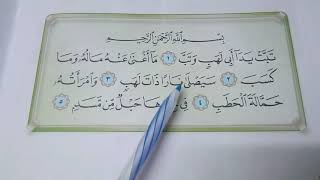 بِسْمِ اللَّهِ الرَّحْمَٰنِ الرَّحِيمِ
تَبَّتْ يَدَا أَبِي لَهَبٍ وَتَبَّ ١ مَا أَغْنَىٰ عَنْهُ مَالُهُ وَمَا
كَسَبَ ٢ سَيَصْلَىٰ نَارًا ذَاتَ لَهَبٍ ٣ وَامْرَأَتُهُ
حَمَّالَةَ الْحَطَبِ ٤ فِي حَبْلٌ مِّن مَّسَدٍ ٥